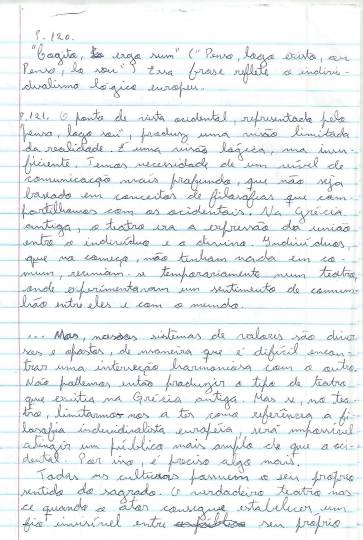 P. 120.
"Cogito, ergo sum" ("Penso, logo existo, ou
Penso, logo sou") Essa frase reflete o indivi-
dualismo lógico europeu.
P. 121. O ponto de vista ocidental, representado pelo
"penso, logo sou", produz uma visão limitada
da realidade. É uma visão lógica, mas insu-
ficiente. Temos necessidade de um nível de
comunicação mais profundo, que não seja
baseado em conceitos de filosofias que com-
partilhamos com os ocidentais. Na Grécia
antiga, o teatro era a expressão da união
entre o indivíduo e o divino. Indivíduos,
que no começo, não tinham nada em co-
mum, reuniam-se temporariamente num teatro,
onde experimentavam um sentimento de comu-
nhão entre eles e com o mundo.
... Mas, nossos sistemas de valores são diver-
sos e opostos, de maneira que é difícil encon-
trar uma interseção harmoniosa com o outro.
Não podemos então produzir o tipo de teatro
que existia na Grécia antiga. Mas se, no tea-
tro, limitarmo-nos a ter como referência a fi-
losofia individualista européia, será impossível
atingir um público mais amplo do que o oci-
dental. Por isso, é preciso algo mais.
Todas as culturas possuem o seu próprio
sentido do sagrado. O verdadeiro teatro nas-
ce quando o ator consegue estabelecer um
fio invisível entre seu próprio